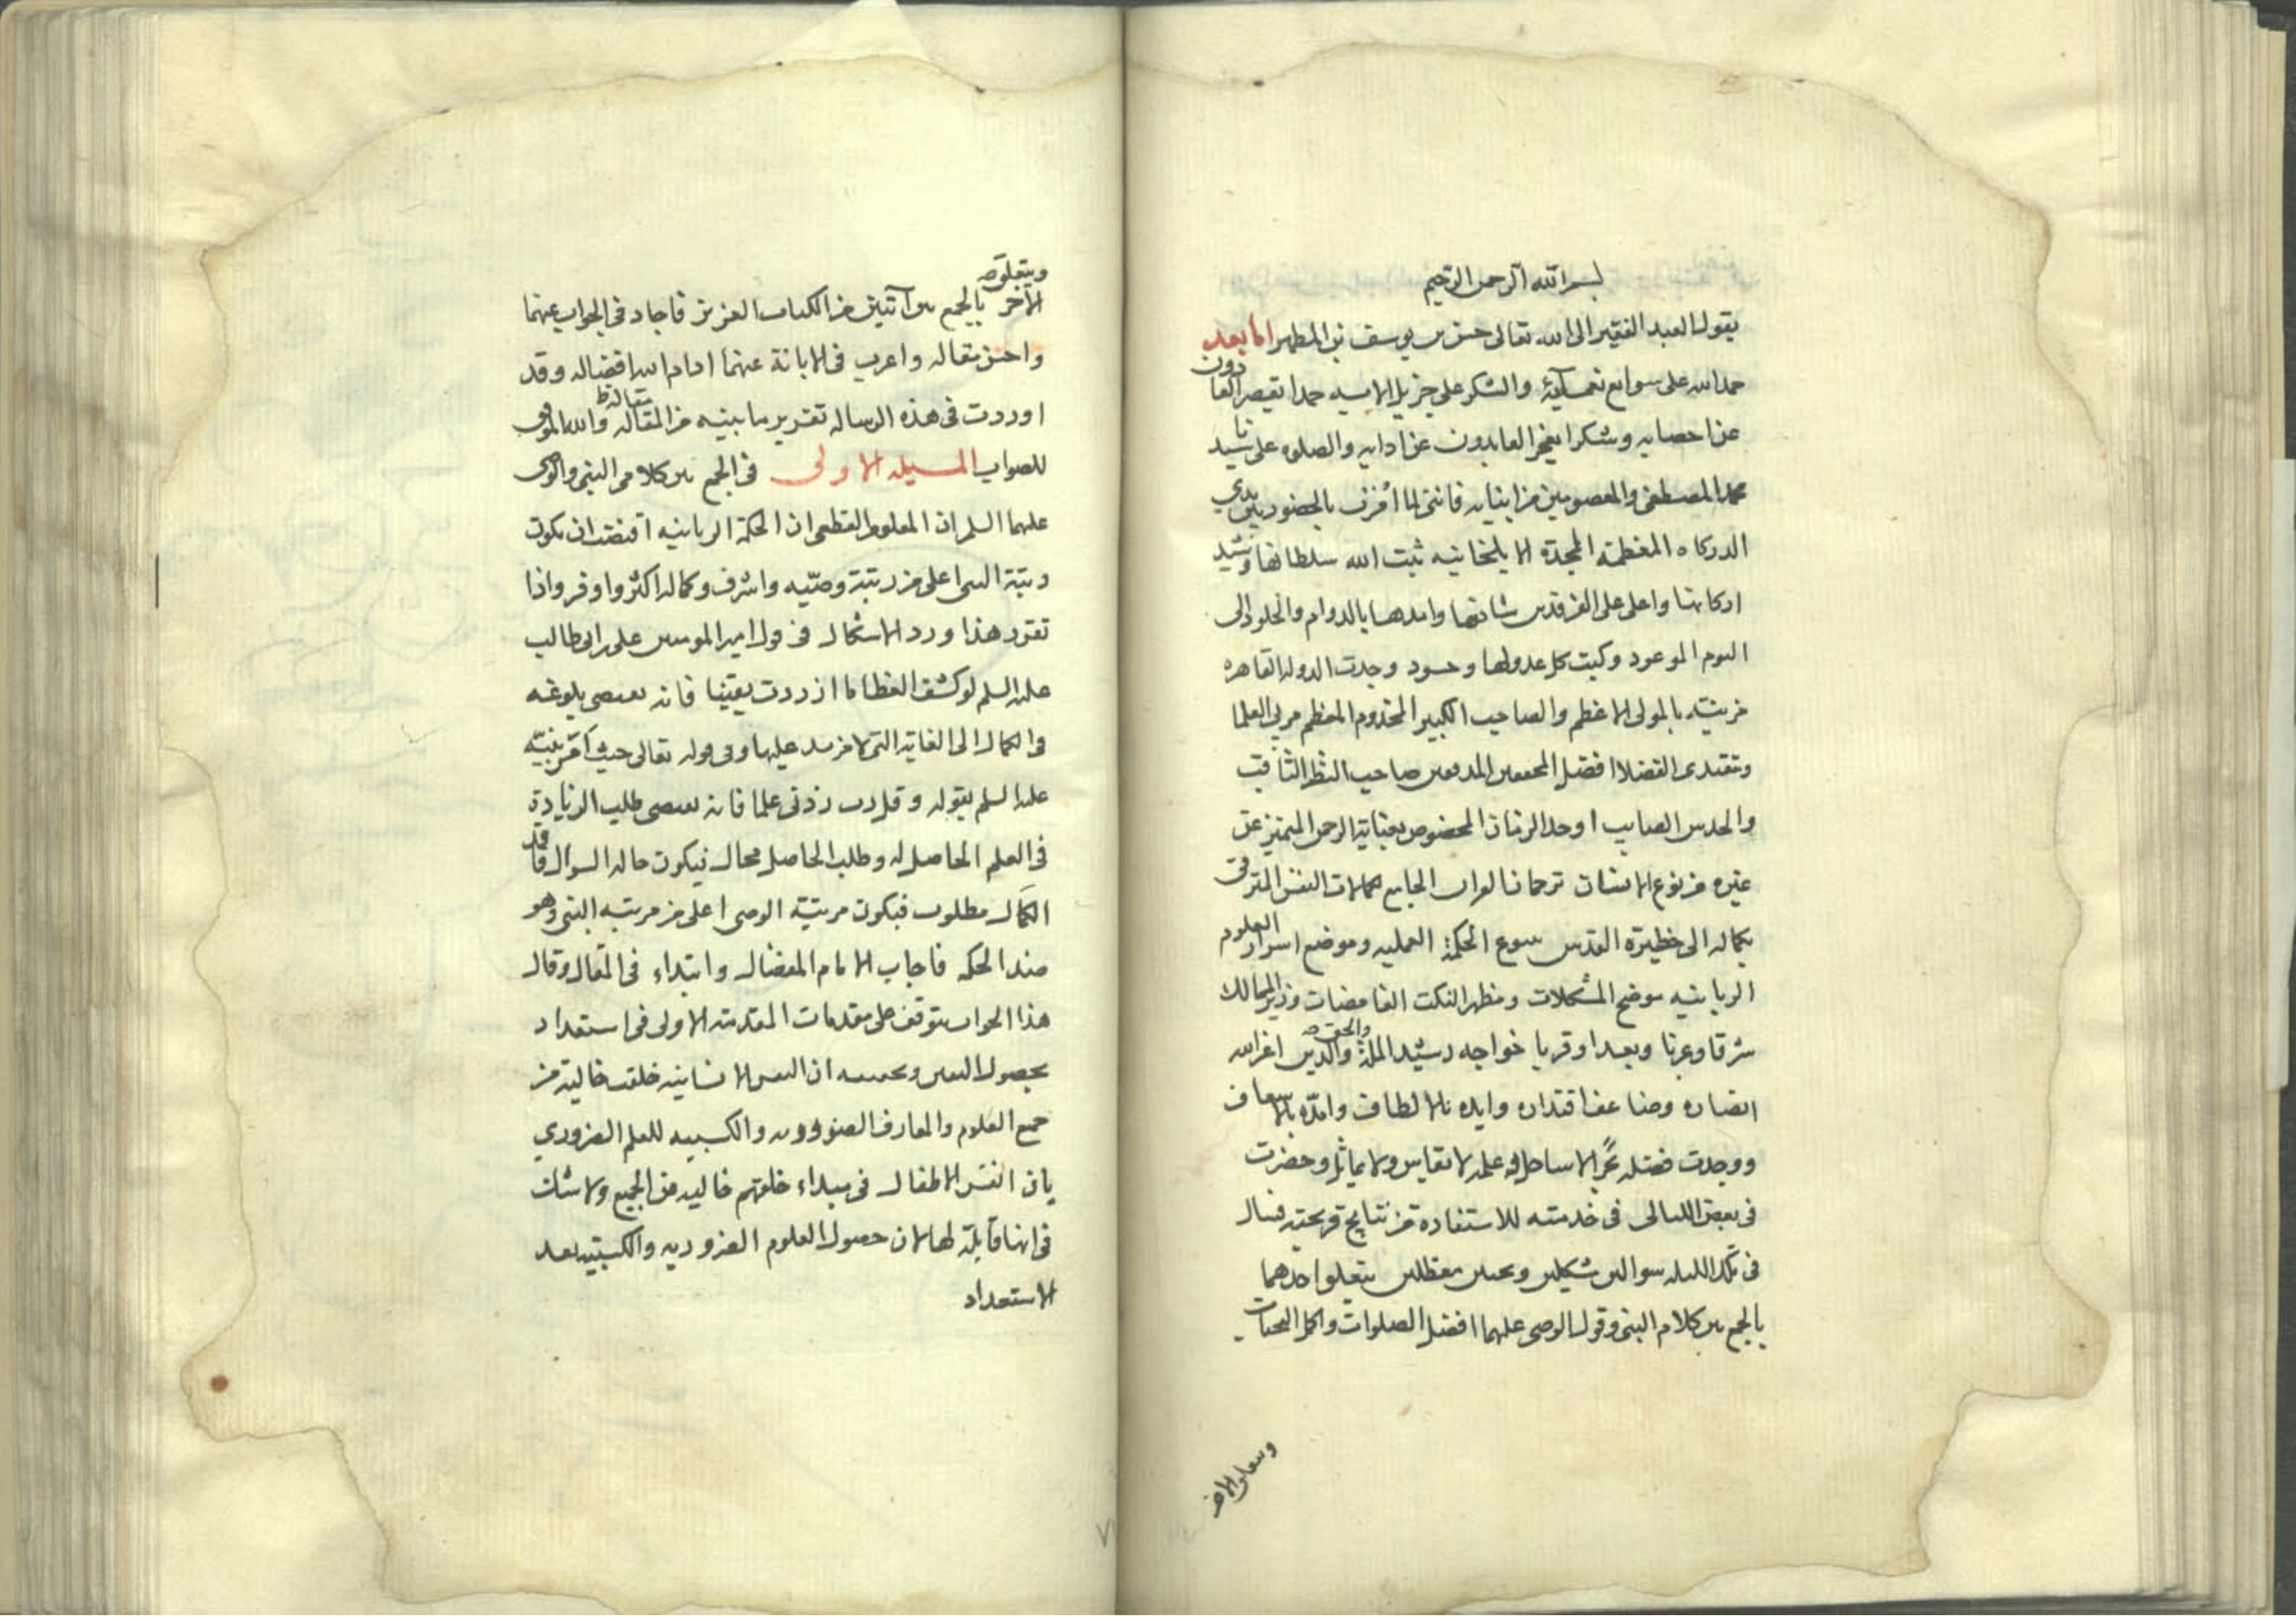 بسم الله الرحمن الرحيم
يقول العبد الفقير الى الله تعالى حسن بن يوسف بن المطهر اما بعد
حمدا لله على سوابغ نعمآئه والشكر على جزيل الاىىه حمدا يقصر العادون
عن احصايه وشكرا يعجز العابدون عن ادايه والصلوه على سيدنا
محمد المصطفى والمعصومين من ابنايه فاننى لما امرت بالحضور بين يدي
الدركاه المعظمة الممجدة الايلخانيه ثبت الله سلطانها وشيد
اركانها واعلى على الفرقدين شانها وامدها بالدوام والخلود الى
اليوم الموعود وكبت كل عدو لها وحسود وجدت الدوله القاهره
مزينه بالمولى الاعظم والصاحب الكبير المخدوم المعظم مربى العلما
ومقتدى الفضلا افضل المحققين المدققين صاحب النظر الثاقب
والحدس الصايب اوحد الزمان المخصوص بعناية الرحمن المتميز عن
غيره من نوع الانسان ترجمان القران الجامع لكمالات النفس المترقى
بكماله الى حظيرة القدس ينبوع الحكمة العمليه وموضع اسرار العلوم
الربانيه موضح المشكلات ومظهر النكت الغامضات وزير الممالك
شرقا وغربا وبعدا وقربا خواجه رشيد الملة والحق والدين اعز الله
انصاره وضاعف اقتداره وايده بالالطاف وامده بالاسعاف
ووجدت فضله بحرا لا ساحل له وعلمه لا يقاس ولا يماثل وحضرت
فى بعض الليالى فى خدمته للاستفاده من نتايج قريحته فسال
فى تلك الليله سوالين مشكلين وبحثين معظلين يتعلق احدهما
بالجمع بين كلام النبى وقول الوصى عليهما افضل الصلوات واكمل التحيات
ويتعلق الاخر
ويتعلق
الآخر بالجمع بين آيتين من الكتاب العزيز فاجاد فى الجواب عنهما
واحسن مقاله واعرب فى الابانة عنهما ادام الله افضاله وقد
اوردت فى هذه الرساله تقرير ما بينه من المقاله والله الموفق
للصواب المسيله الاولى فى الجمع بين كلامى النبى والوصى
عليهما السلم ان المعلوم القطعى ان الحكمة الربانيه اقتضت ان يكون
رتبة النبى اعلى من رتبة وصيّه واشرف وكماله اكثر واوفر واذا
تقرر هذا ورد الاشكال فى قول امير المومنين على بن ابى طالب
عليه السلم لو كشف الغطا ما ازددت يقينا فانه يقتضى بلوغه
فى الكمال الى الغاية التى لا مزيد عليها وفى قوله تعالى حيث امر نبيّه
عليه السلم بقوله وقل رب زدنى علما فانه يقتضى طلب الزيادة
فى العلم الحاصل له وطلب الحاصل محال فيكون حاله السوال فاقد
الكمال مطلوب فيكون مرتبة الوصى اعلى من مرتبه النبى وهو
ضد الحكمه فاجاب الامام المفضال وابتداء فى المقال وقال
هذا الجواب يتوقف على مقدمات المقدمة الاولى فى استعداد
بحصول اليقين وتحقيقه ان النفس الانسانيه خلقت خالية من
جميع العلوم والمعارف الضروريه والكسبيه للعلم الضروري
بان انفس الاطفال فى مبداء خلقهم خاليه من الجميع ولا شك
فى انها قابلة لها لان حصول العلوم الضروريه والكسبيه بعد
الاستعداد